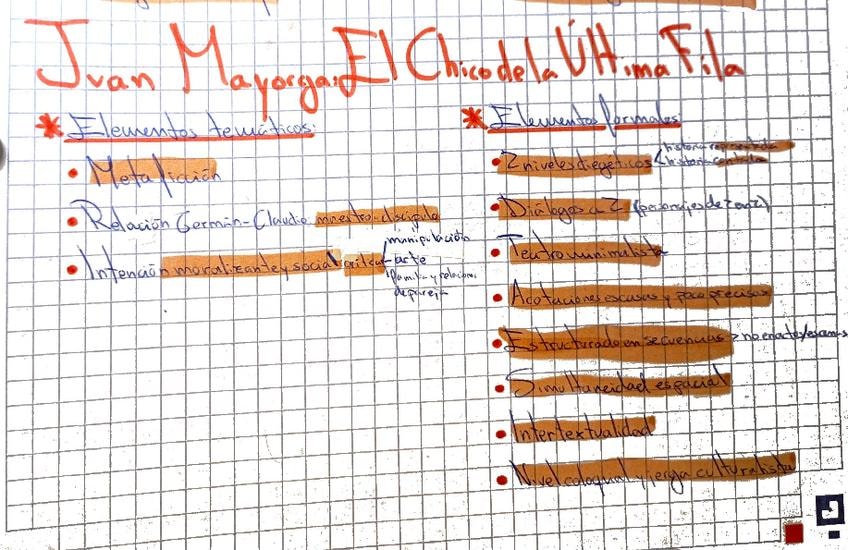 Juan Mayorga: El Chico de la Última Fila
* Elementos temáticos:
• Metaficción
• Relación Germán-Claudio maestro-discípulo
• Intención moralizante y social crítica
manipulación
arte
familia y relaciones
de pareja
* Elementos formales:
• 2 niveles diegéticos
historia representada
historia contada
• Diálogos a 2 (personajes de 2 en 2)
• Teatro minimalista
• Acotaciones escasas y poco precisas
• Estructurado en secuencias > no en actos/escenas
• Simultaneidad espacial
• Intertextualidad
• Nivel coloquial y jerga culturalista